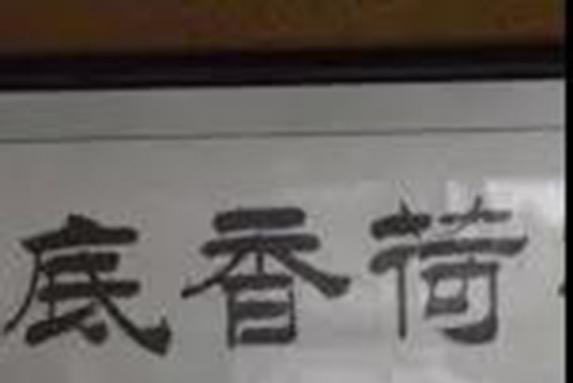 荷香底